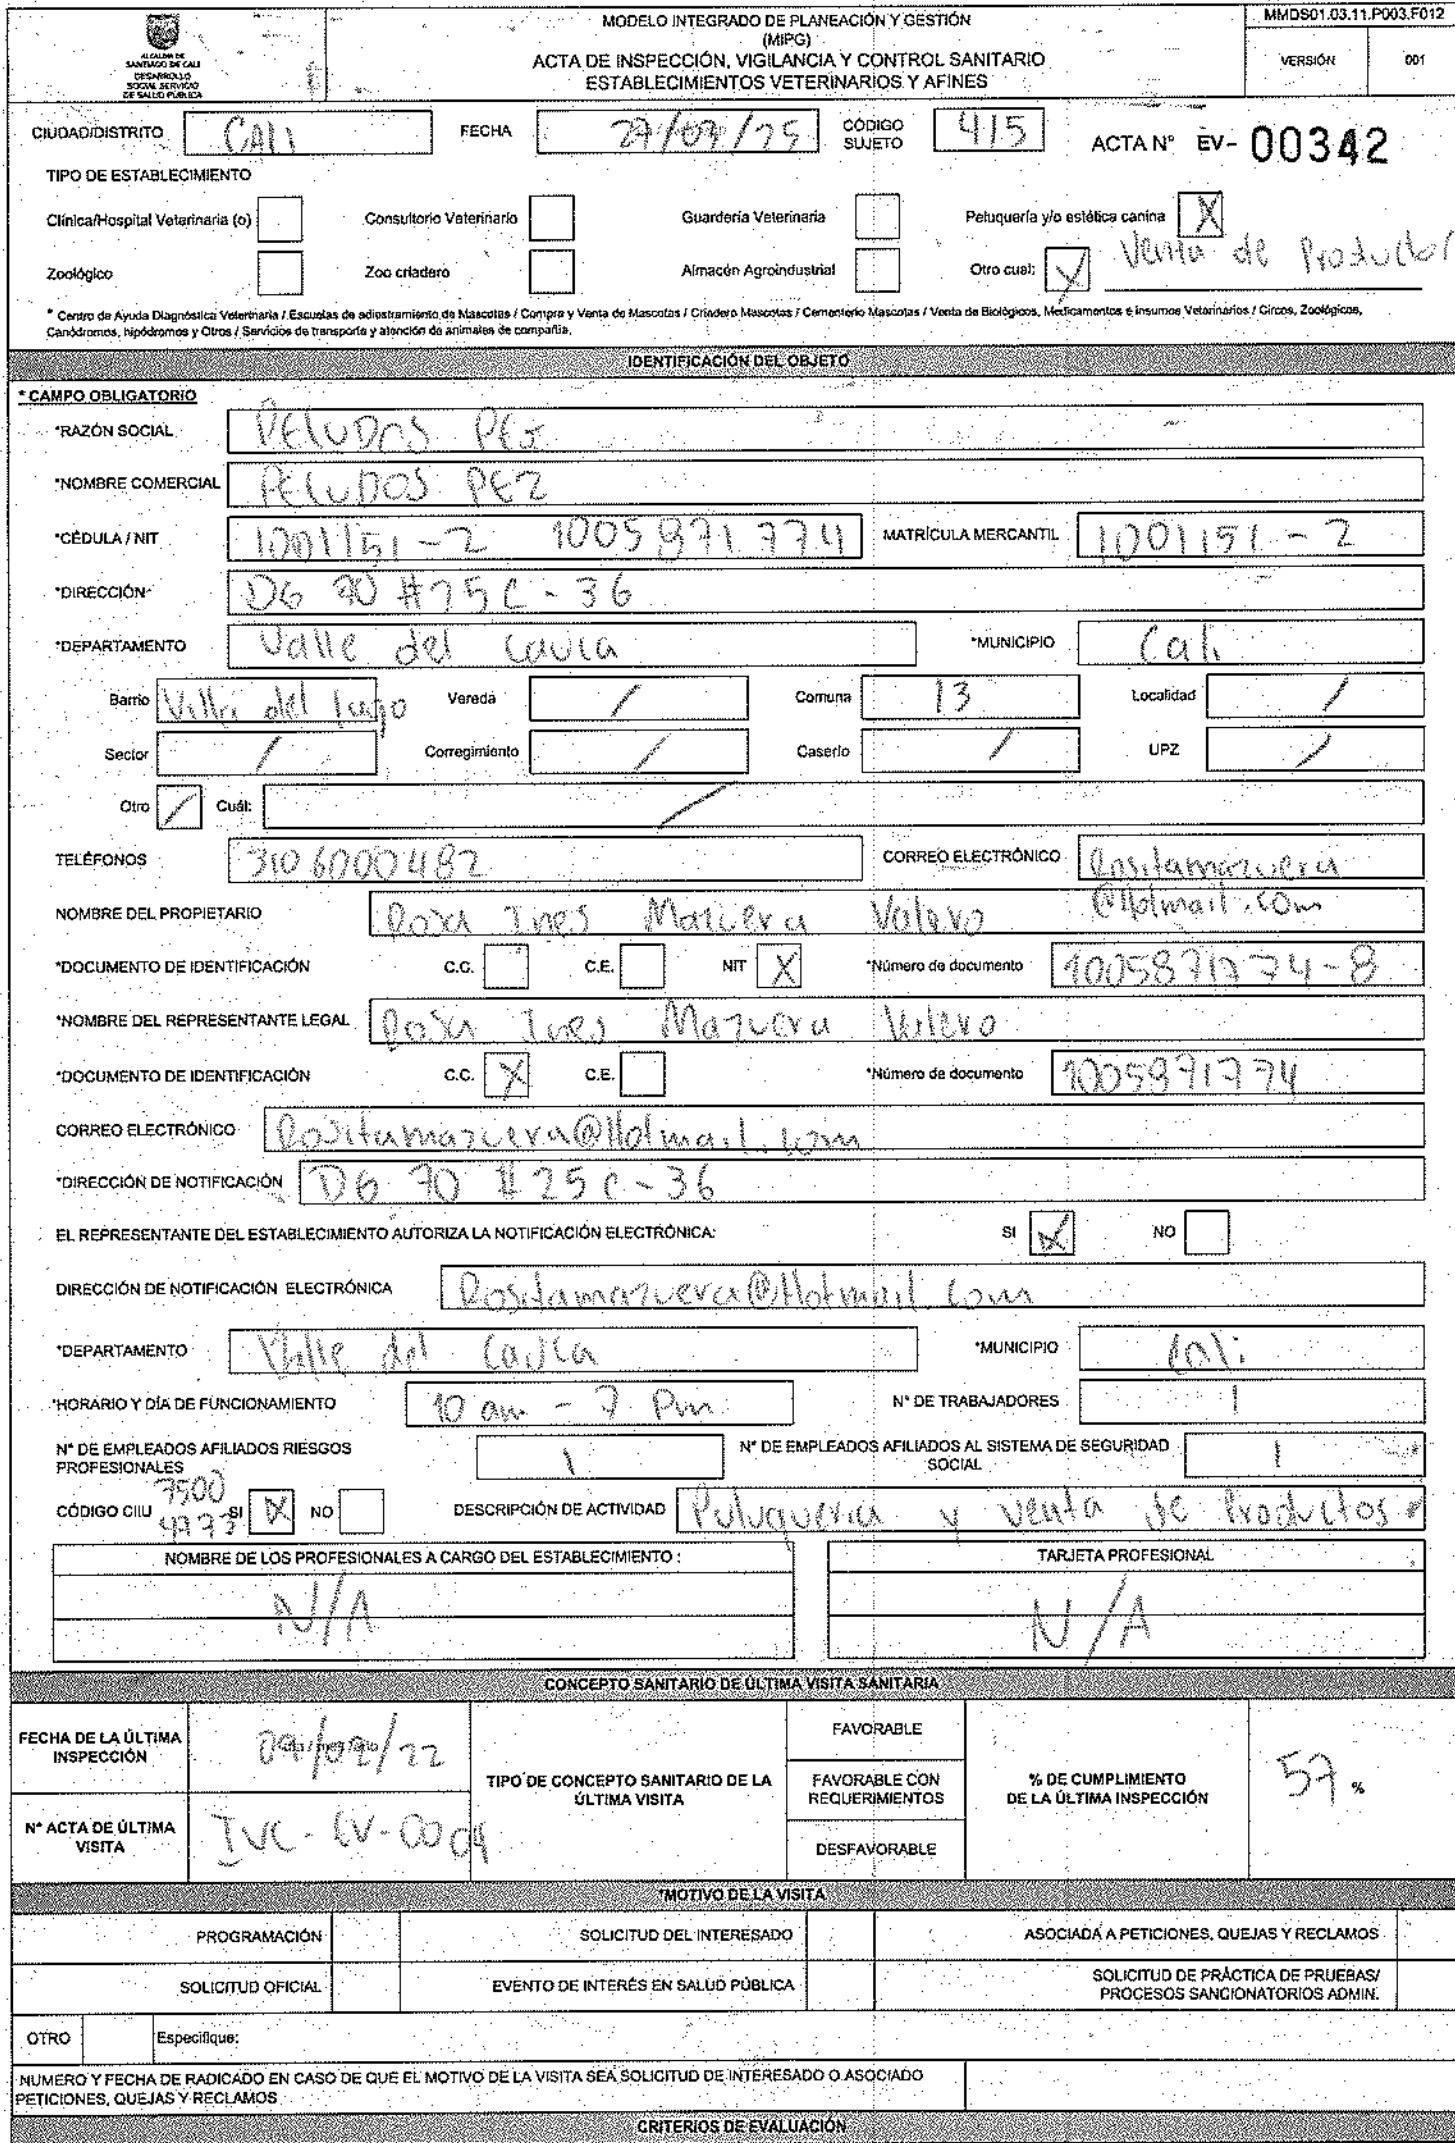 ALCALDÍA DE
SANTIAGO DE CALI
DESARROLLO
SOCIAL SERVICIO
DE SALUD PÚBLICA
MODELO INTEGRADO DE PLANEACIÓN Y GESTIÓN
(MIPG)
ACTA DE INSPECCIÓN, VIGILANCIA Y CONTROL SANITARIO
ESTABLECIMIENTOS VETERINARIOS Y AFINES
MMDS01.03.11.P003.F012
VERSIÓN 001
CIUDAD/DISTRITO CALI FECHA 27/07/25 CÓDIGO SUJETO 415 ACTA N° EV- 00342
TIPO DE ESTABLECIMIENTO
Clínica/Hospital Veterinaria (o) Consultorio Veterinario Guardería Veterinaria Peluquería y/o estética canina X
Zoológico Zoo criadero Almacén Agroindustrial Otro cual: X Venta de Productos
* Centro de Ayuda Diagnóstica Veterinaria / Escuelas de adiestramiento de Mascotas / Compra y Venta de Mascotas / Criadero Mascotas / Cementerio Mascotas / Venta de Biológicos, Medicamentos e insumos Veterinarios / Circos, Zoológicos,
Canódromos, hipódromos y Otros / Servicios de transporte y atención de animales de compañía.
IDENTIFICACIÓN DEL OBJETO
* CAMPO OBLIGATORIO
*RAZÓN SOCIAL PELUDOS PEZ
*NOMBRE COMERCIAL PELUDOS PEZ
*CÉDULA / NIT 1001151-2 1005871774 MATRÍCULA MERCANTIL 1001151-2
*DIRECCIÓN DG 70 #25C-36
*DEPARTAMENTO Valle del Cauca *MUNICIPIO Cali
Barrio Villa del lago Vereda / Comuna 13 Localidad /
Sector / Corregimiento / Caserío / UPZ /
Otro / Cuál: /
TELÉFONOS 3106000482 CORREO ELECTRÓNICO Rositamazuera
@Hotmail.com
NOMBRE DEL PROPIETARIO Rosa Ines Mazuera Valero
*DOCUMENTO DE IDENTIFICACIÓN C.C. C.E. NIT X *Número de documento 1005871774-8
*NOMBRE DEL REPRESENTANTE LEGAL Rosa Ines Mazuera Valero
*DOCUMENTO DE IDENTIFICACIÓN C.C. X C.E. *Número de documento 1005871774
CORREO ELECTRÓNICO Rositamazuera@Hotmail.com
*DIRECCIÓN DE NOTIFICACIÓN DG 70 #25C-36
EL REPRESENTANTE DEL ESTABLECIMIENTO AUTORIZA LA NOTIFICACIÓN ELECTRÓNICA: SI X NO
DIRECCIÓN DE NOTIFICACIÓN ELECTRÓNICA Rositamazuera@Hotmail.com
*DEPARTAMENTO Valle del Cauca *MUNICIPIO Cali
*HORARIO Y DÍA DE FUNCIONAMIENTO 10 am - 7 Pm N° DE TRABAJADORES 1
N° DE EMPLEADOS AFILIADOS RIESGOS PROFESIONALES 1 N° DE EMPLEADOS AFILIADOS AL SISTEMA DE SEGURIDAD SOCIAL 1
CÓDIGO CIIU 7500 4773 SI X NO DESCRIPCIÓN DE ACTIVIDAD Puluqueria y venta de Productos
NOMBRE DE LOS PROFESIONALES A CARGO DEL ESTABLECIMIENTO : TARJETA PROFESIONAL
N/A N/A
CONCEPTO SANITARIO DE ÚLTIMA VISITA SANITARIA
FECHA DE LA ÚLTIMA INSPECCIÓN
N° ACTA DE ÚLTIMA VISITA IVC-EV-0004
TIPO DE CONCEPTO SANITARIO DE LA ÚLTIMA VISITA
FAVORABLE
FAVORABLE CON REQUERIMIENTOS
DESFAVORABLE
% DE CUMPLIMIENTO DE LA ÚLTIMA INSPECCIÓN 57 %
*MOTIVO DE LA VISITA
PROGRAMACIÓN SOLICITUD DEL INTERESADO ASOCIADA A PETICIONES, QUEJAS Y RECLAMOS
SOLICITUD OFICIAL EVENTO DE INTERÉS EN SALUD PÚBLICA SOLICITUD DE PRÁCTICA DE PRUEBAS/ PROCESOS SANCIONATORIOS ADMIN.
OTRO Especifique:
NUMERO Y FECHA DE RADICADO EN CASO DE QUE EL MOTIVO DE LA VISITA SEA SOLICITUD DE INTERESADO O ASOCIADO
PETICIONES, QUEJAS Y RECLAMOS
CRITERIOS DE EVALUACIÓN